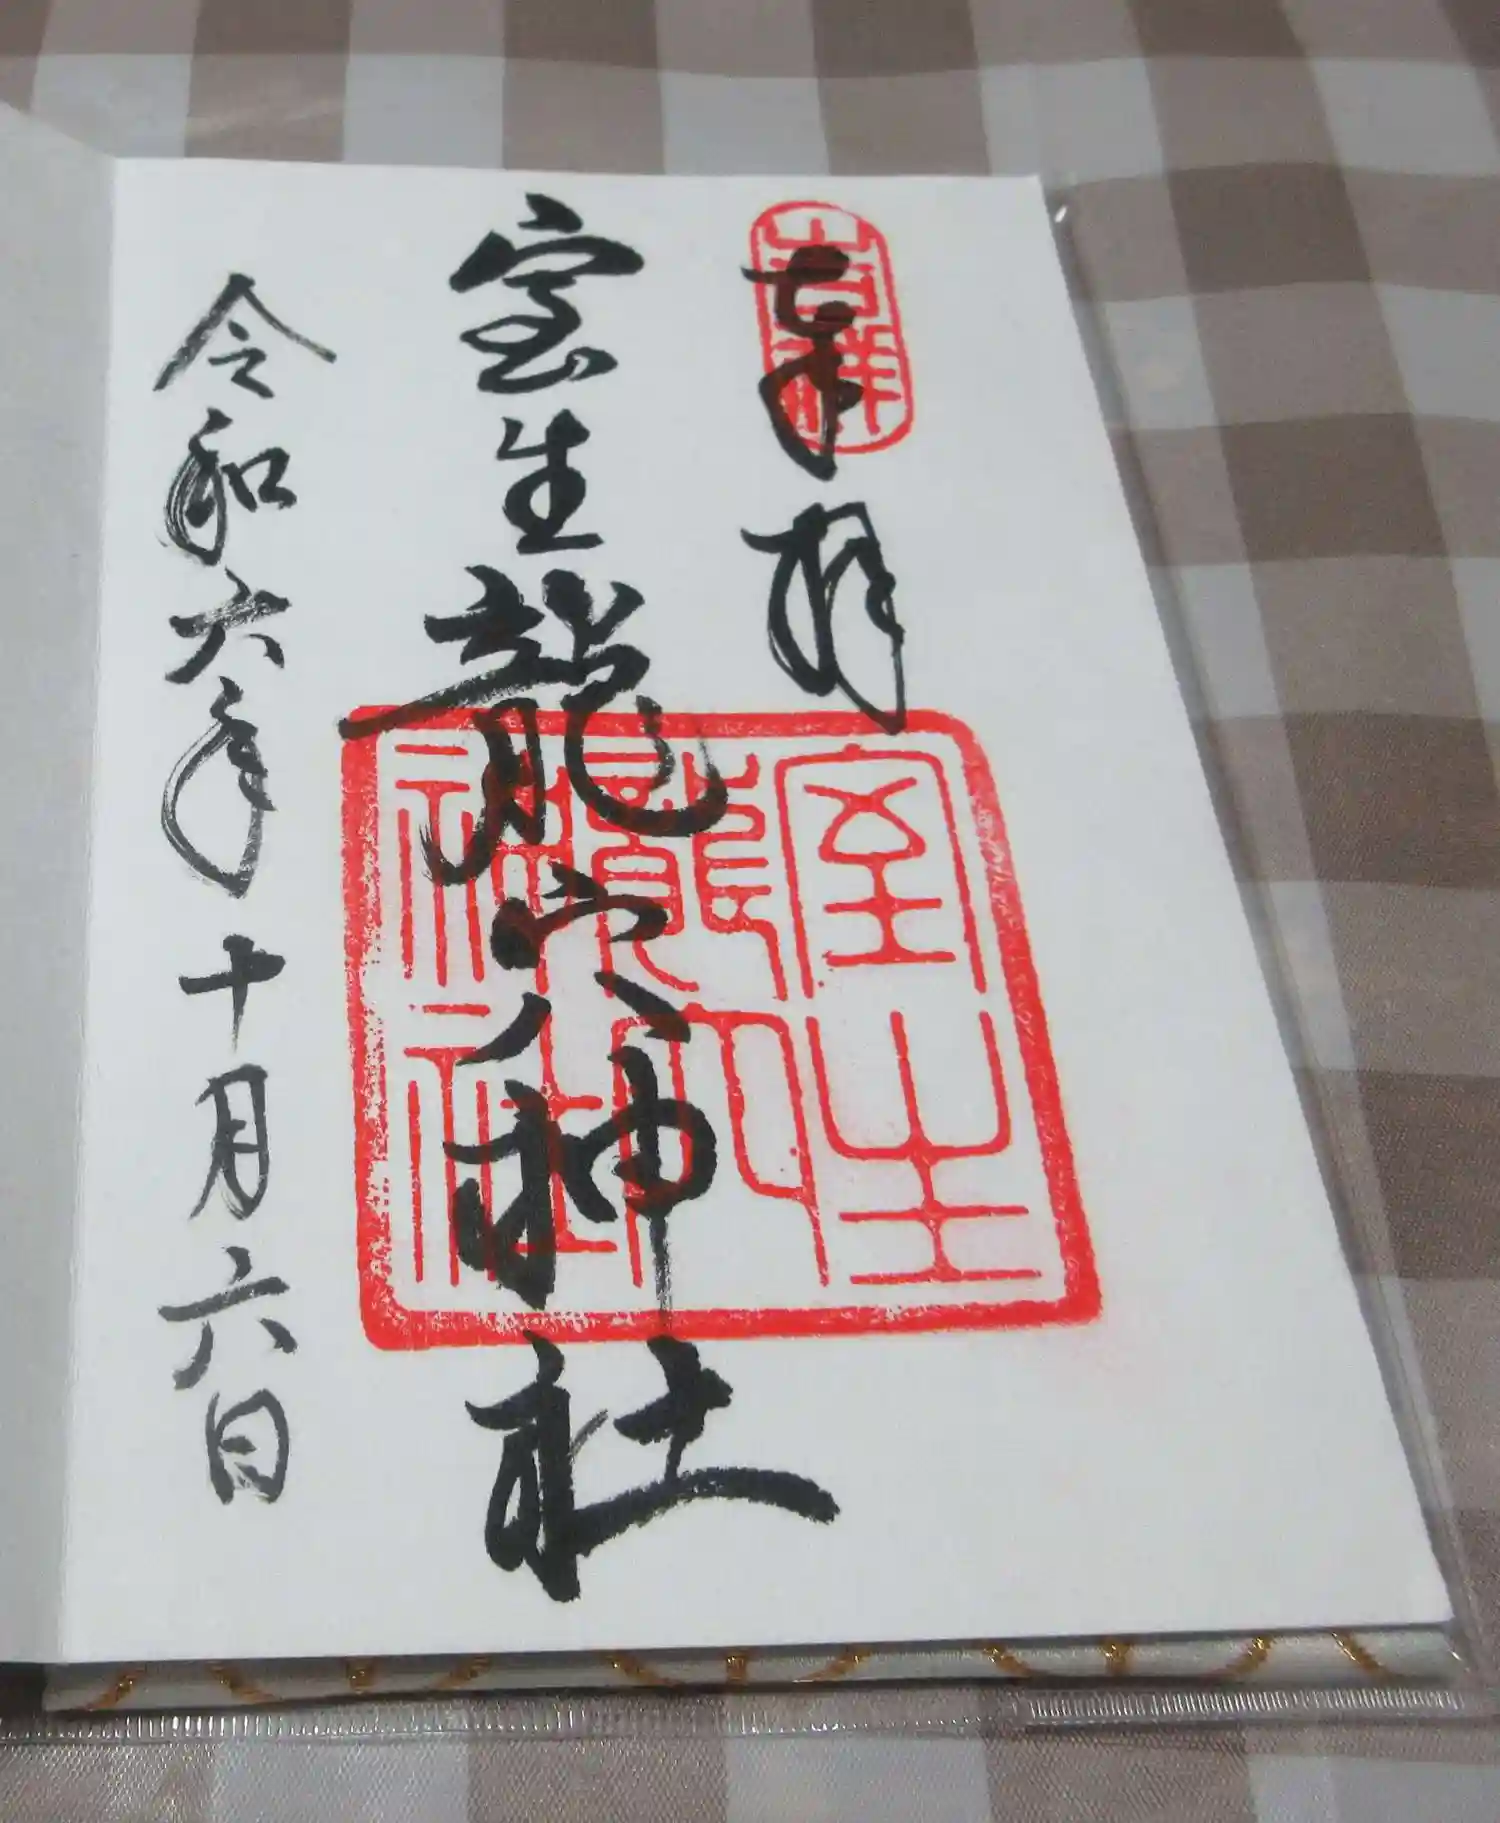 奉拝
吉祥
室生龍穴神社
室生
龍穴
神社
令和六年十月六日